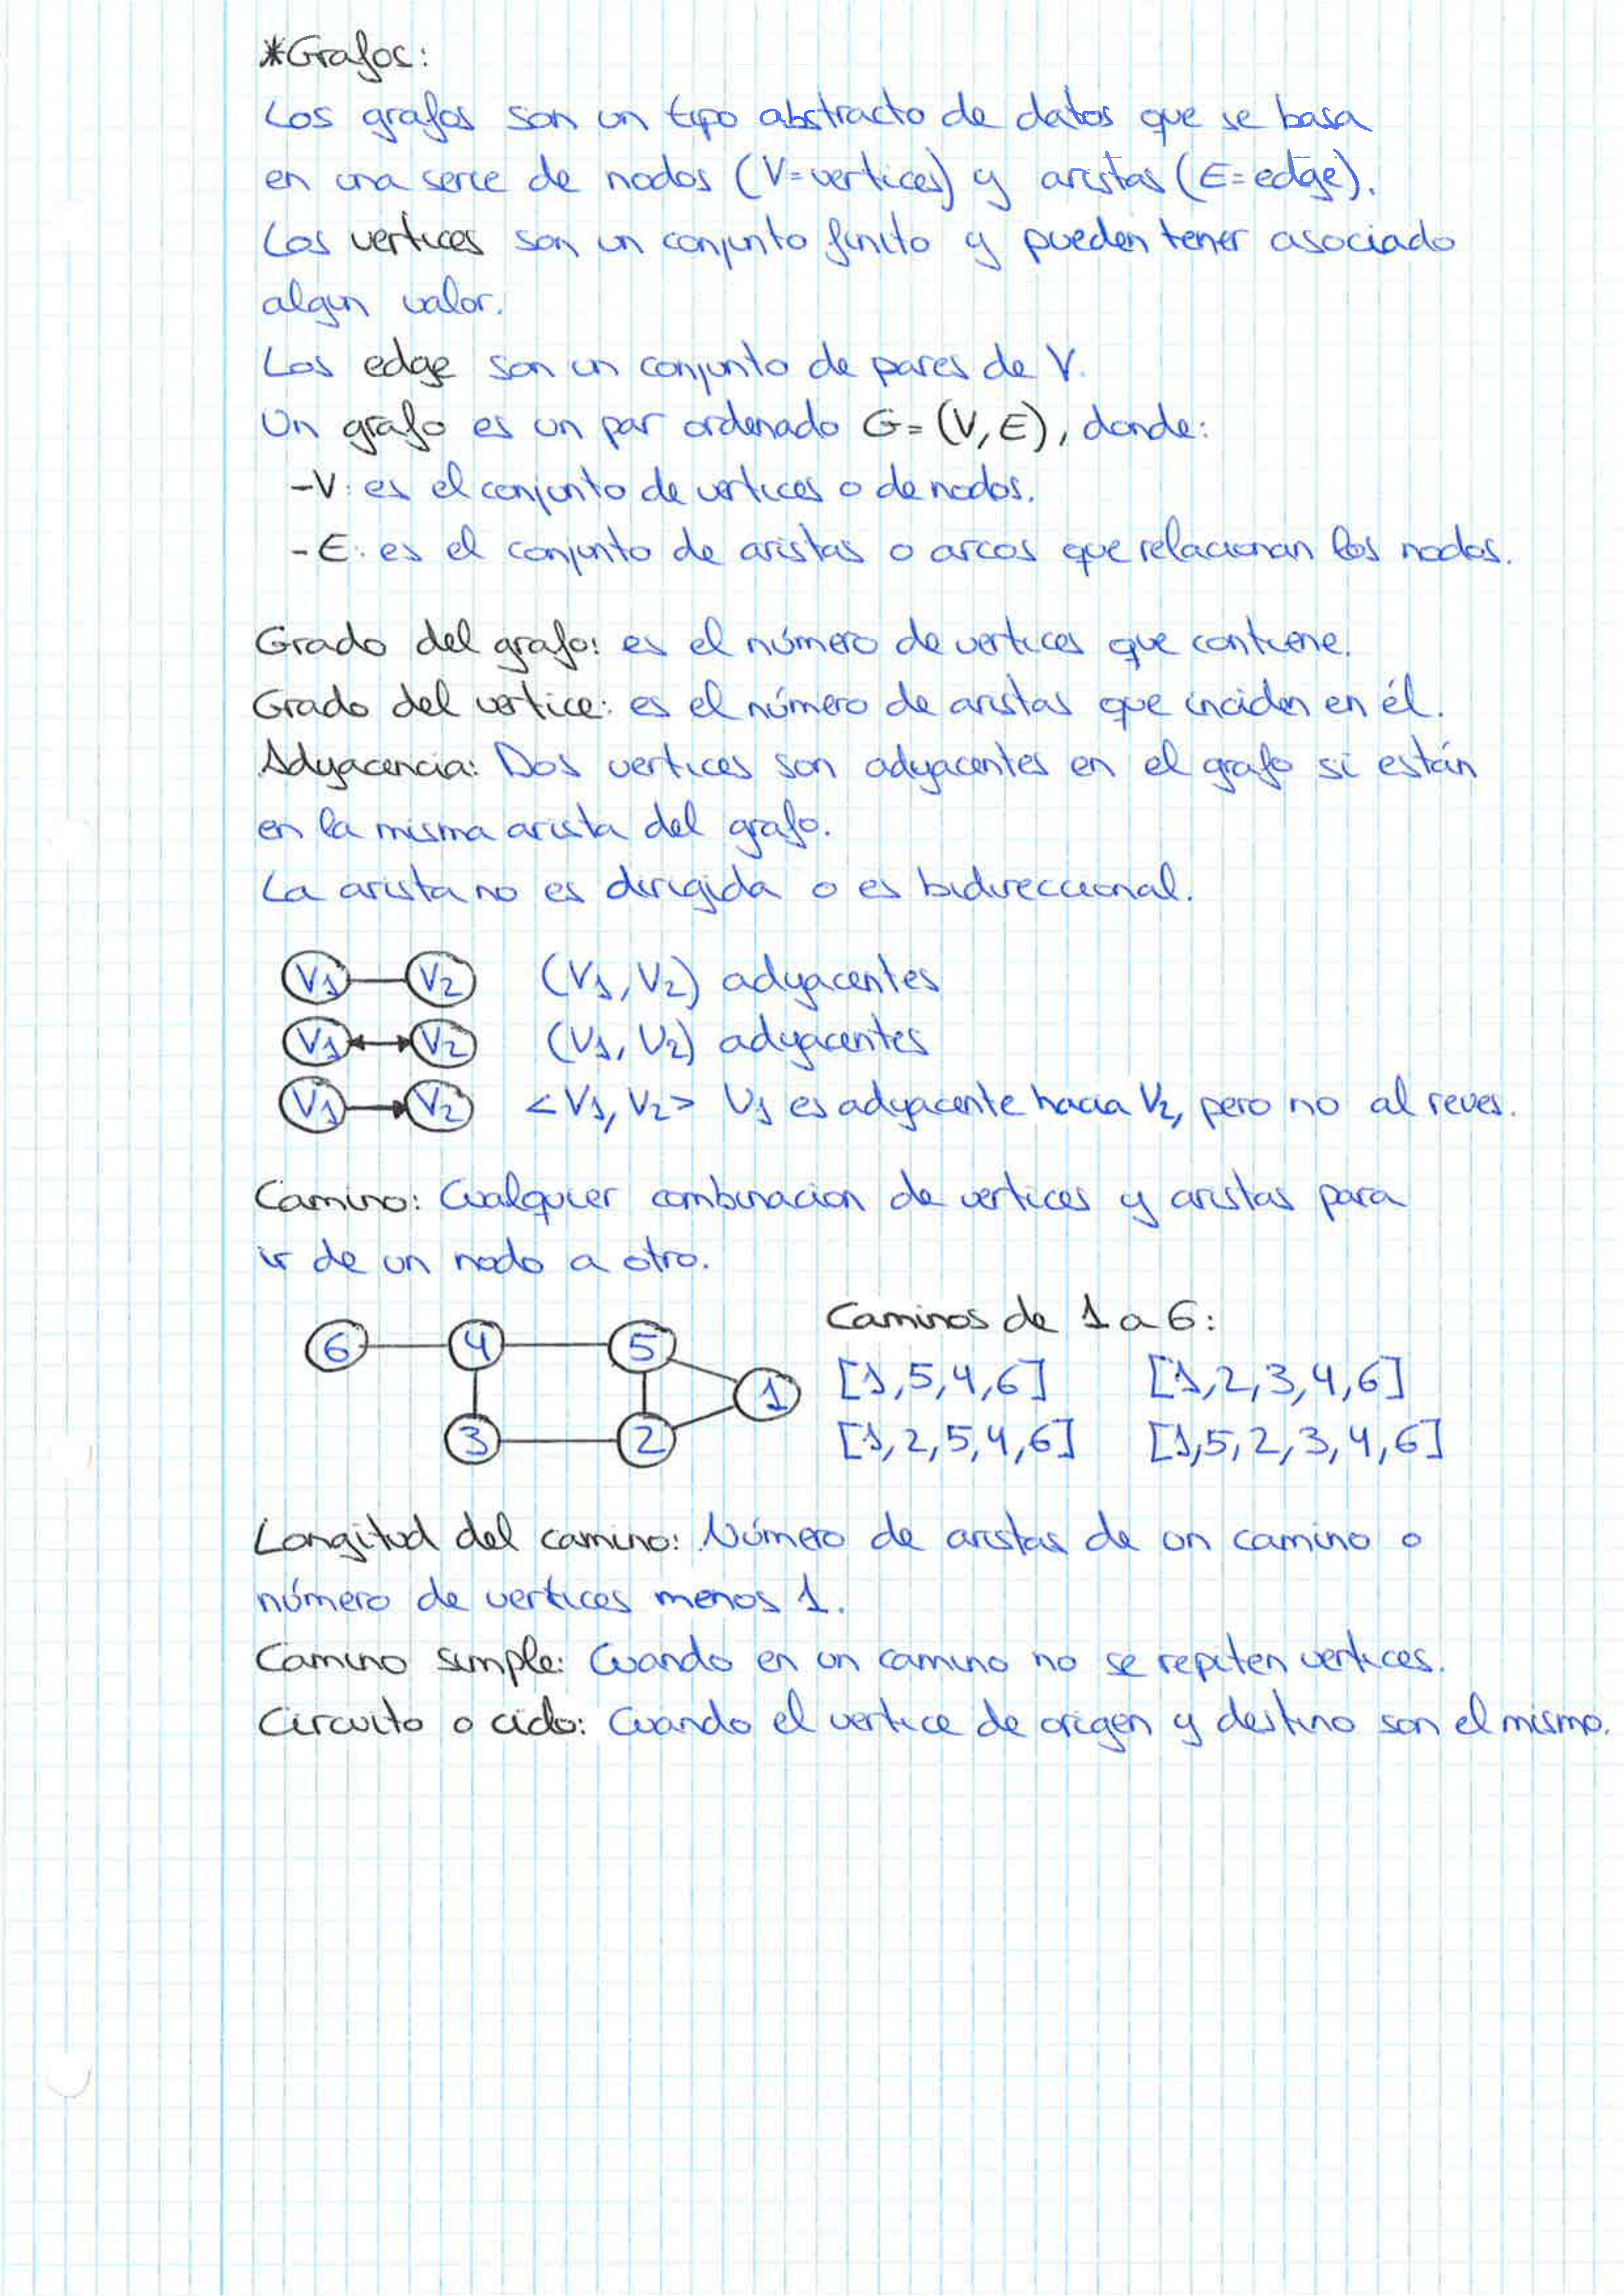 *Grafos:
Los grafos son un tipo abstracto de datos que se basa
en una serie de nodos (V=vertices) y aristas (E=edge).
Los vertices son un conjunto finito y pueden tener asociado
algun valor.
Los edge son un conjunto de pares de V.
Un grafo es un par ordenado G=(V,E), donde:
-V: es el conjunto de vertices o de nodos.
-E: es el conjunto de aristas o arcos que relacionan los nodos.
Grado del grafo: es el número de vertices que contiene.
Grado del vertice: es el número de aristas que inciden en él.
Adyacencia: Dos vertices son adyacentes en el grafo si están
en la misma arista del grafo.
La arista no es dirigida o es bidireccional.
V1 V2 (V1,V2) adyacentes
V1 V2 (V1,V2) adyacentes
V1 V2 <V1,V2> V1 es adyacente hacia V2, pero no al reves.
Camino: Cualquier combinacion de vertices y aristas para
ir de un nodo a otro.
Caminos de 1 a 6:
6 4 5 1 [1,5,4,6] [1,2,3,4,6]
3 2 [1,2,5,4,6] [1,5,2,3,4,6]
Longitud del camino: Número de aristas de un camino o
número de vertices menos 1.
Camino simple: Cuando en un camino no se repiten vertices.
Circuito o ciclo: Cuando el vertice de origen y destino son el mismo.